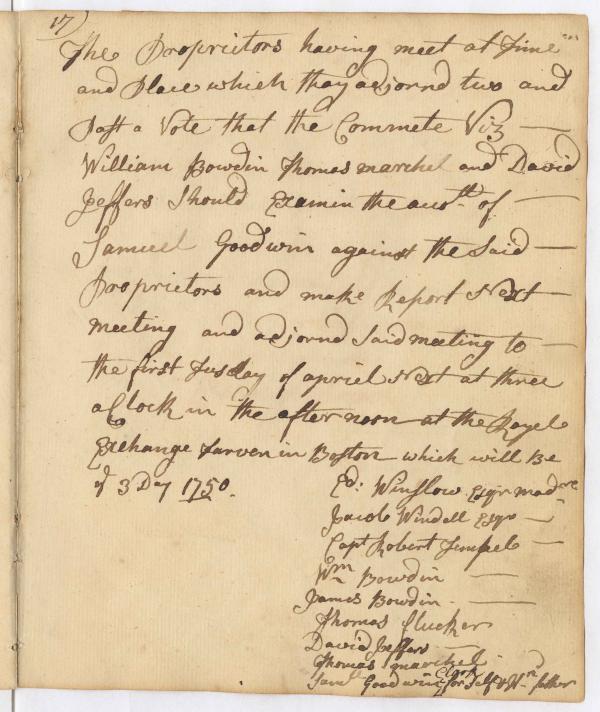 17)
The Proprietors having meet at Time
and Place which thay adjornd two and
Past a Vote that the Commete Viz
William Bowdin Thomas marchel and David
Jeffers Should Examin the acost. of
Samuel Goodwin against the Said
Proprietors and make Report Next
meeting and adjornd Said meeting to
the first Tusday of apriel Next at three
a Clock in the after noon at the Royel
Exchange Tarven in Boston which will Be
ye 3 Day 1750.
Ed: Winslow Esqr
Jacob Windell Esqr
Capt Robert Tempel
Wm Bowdin
James Bowdin
Thomas flucker
David Jeffers
Thomas marchel
Saml Goodwin Clark for Self & father